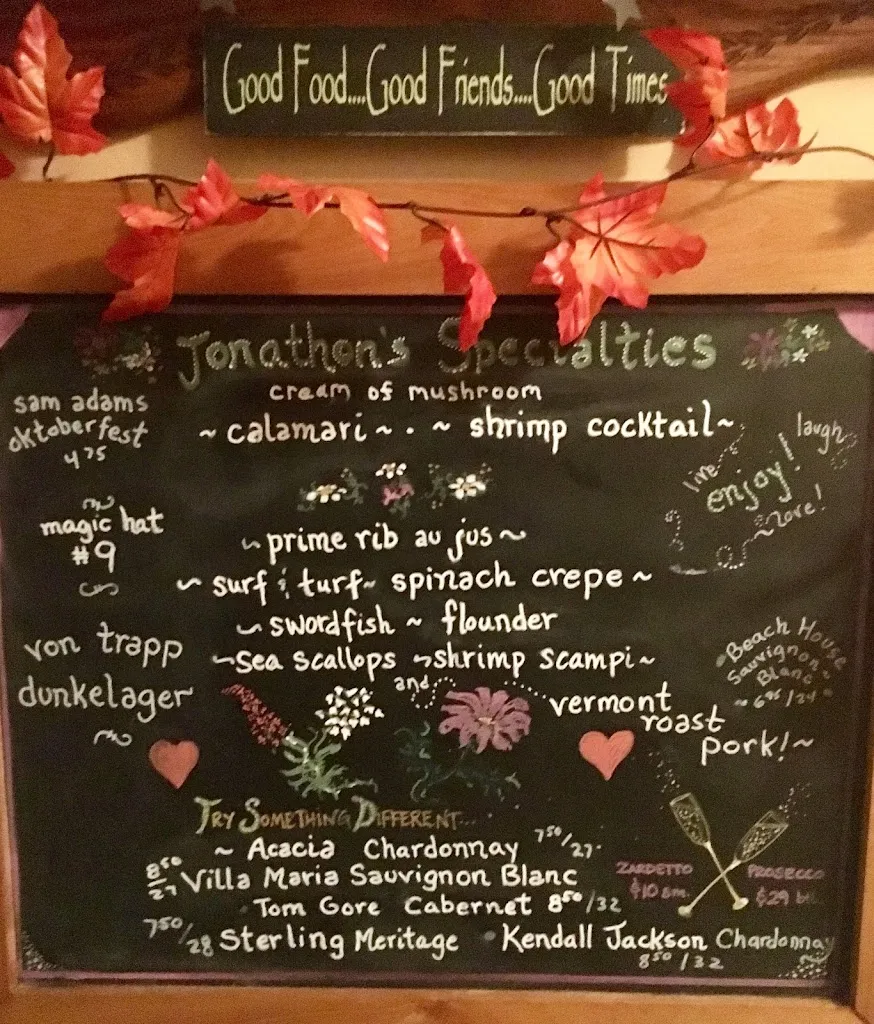 Good Food....Good Friends....Good Times
Jonathon's Specialties
cream of mushroom
~ calamari ~ . ~ shrimp cocktail ~
sam adams
oktoberfest
4 75
magic hat
#9
von trapp
dunkelager
live laugh
enjoy!
love!
~ prime rib au jus ~
~ surf & turf ~ spinach crepe ~
~ swordfish ~ flounder
~ sea scallops ~ shrimp scampi ~
and
vermont
roast
pork! ~
Beach House
Sauvignon
Blanc
~ 6 95 / 24 ~
Try Something Different...
~ Acacia Chardonnay 7 50 / 27
8 50 / 27 Villa Maria Sauvignon Blanc
Tom Gore Cabernet 8 50 / 32
7 50 / 28 Sterling Meritage • Kendall Jackson Chardonnay
8 50 / 32
Zardetto Prosecco
$10 sm. $29 btl.